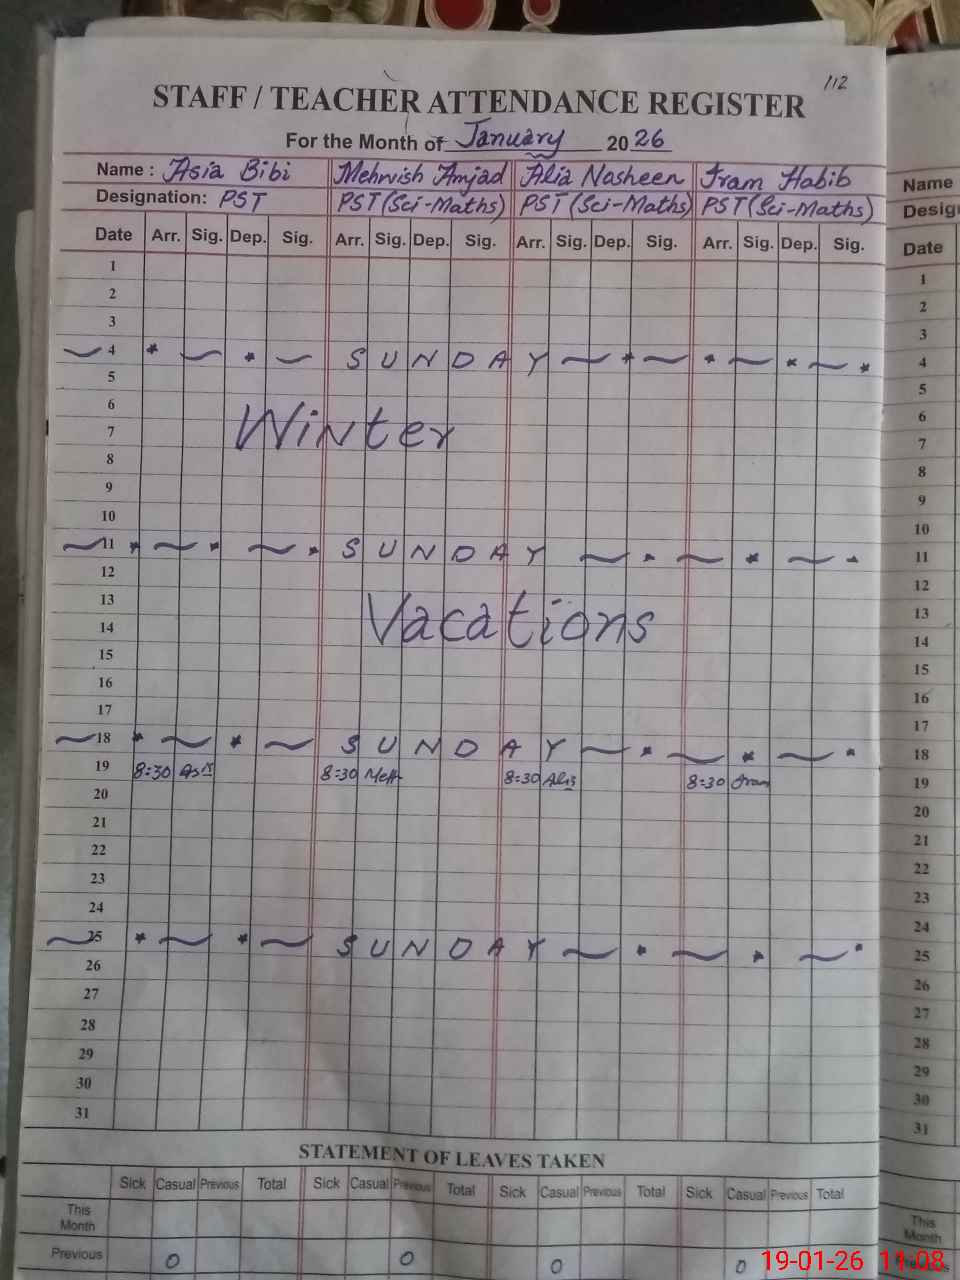 112
STAFF / TEACHER ATTENDANCE REGISTER
For the Month of January 2026
Name : Asia Bibi Mehwish Amjad Alia Nosheen Iram Habib Name
Designation: PST PST (Sci-Maths) PST (Sci-Maths) PST (Sci-Maths)
Date Arr. Sig. Dep. Sig. Arr. Sig. Dep. Sig. Arr. Sig. Dep. Sig. Arr. Sig. Dep. Sig. Date
1 1
2 2
3 3
4 SUNDAY 4
5 5
6 6
Winter
7 7
8 8
9 9
10 10
11 SUNDAY 11
12 12
13 13
Vacations
14 14
15 15
16 16
17 17
18 SUNDAY 18
19 8:30 8:30 8:30 8:30 Iram 19
20 20
21 21
22 22
23 23
24 24
25 SUNDAY 25
26 26
27 27
28 28
29 29
30 30
31 31
STATEMENT OF LEAVES TAKEN
Sick Casual Previous Total Sick Casual Previous Total Sick Casual Previous Total Sick Casual Previous Total
This Month This Month
Previous 0 0 0 0
19-01-26 11:08